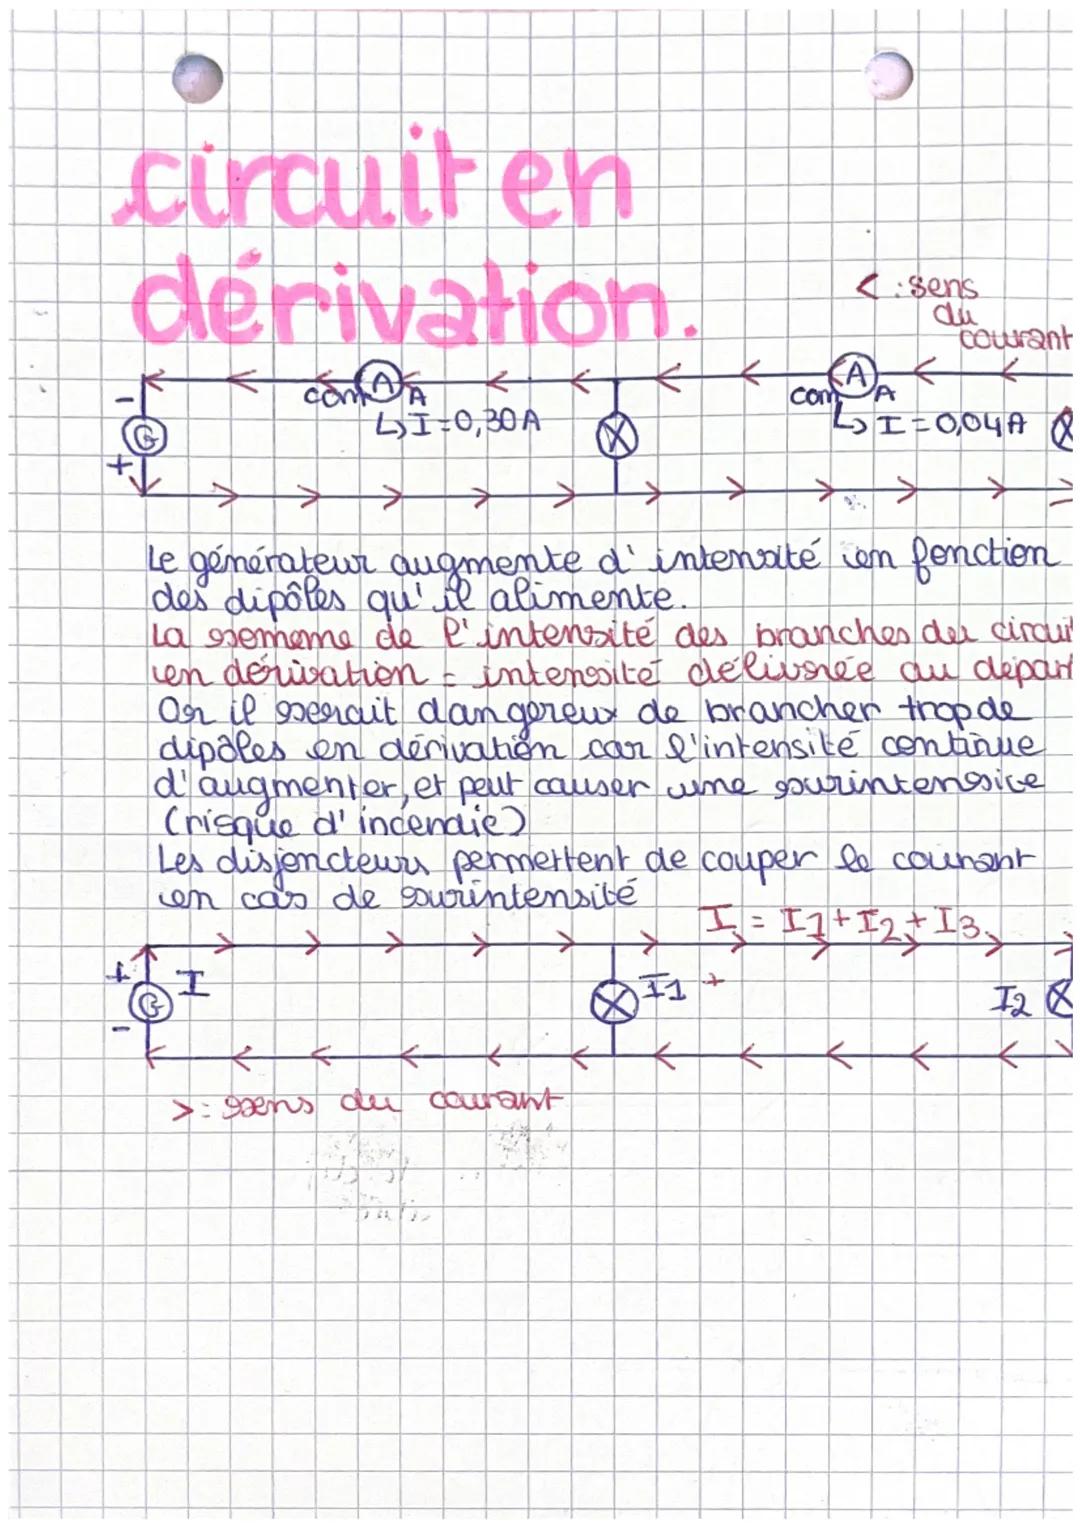 circuit en
dérivation.
< : sens
du
courant
- com A A com A A
G ↳ I = 0,30 A ↳ I = 0,04 A
+
Le générateur augmente d'intensité en fonction
des dipôles qu'il alimente.
La somme de l'intensité des branches du circuit
en dérivation = intensité délivrée au départ
Or il serait dangereux de brancher trop de
dipôles en dérivation car l'intensité continue
d'augmenter, et peut causer une surintensité
(risque d'incendie)
Les disjoncteurs permettent de couper le courant
en cas de surintensité
I = I1 + I2 + I3
+ I I1 + I2
G
-
> : sens du courant